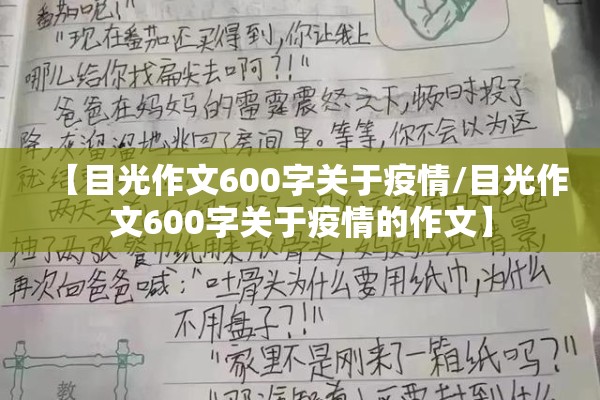 番茄呢！"
"现在番茄还买得到，你让我上
哪儿给你找扁尖去啊？！"
爸爸在妈妈的雷霆震怒之下，顿时投了
降，灰溜溜地逃回了房间里。等等，你不会以为这
【目光作文600字关于疫情/目光作
文600字关于疫情的作文】
两天
独了两张餐巾纸用来放骨头，妈妈
再次向爸爸喊："吐骨头为什么要用纸巾，为什么
不用盘子？！"
"家里不是刚来了一箱纸吗？"
教